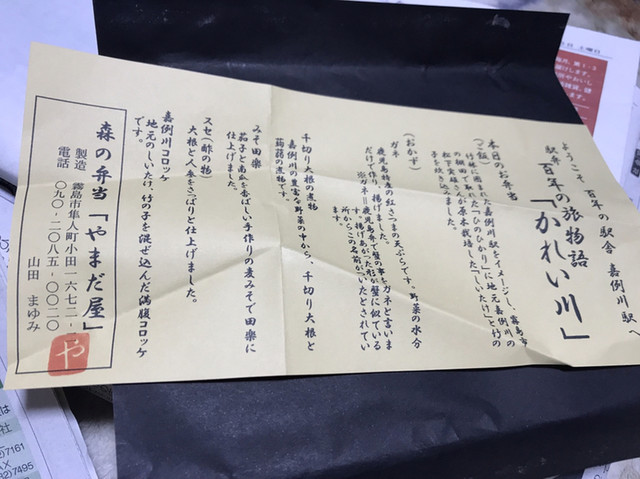 ようこそ 百年の駅舎 嘉例川駅へ
駅弁 百年の旅物語
「かれい川」
本日のお弁当
(ご飯)
竹林に囲まれた嘉例川駅をイメージし、霧島市
の棚田で取れた「ひのひかり」に地元嘉例川の
松下実義さんが原木栽培した「しいたけ」と竹の
子を炊き込みました。
(おかず)
ガネ
鹿児島特産の紅さつまの天ぷらです。野菜の水分
だけで作り、揚げました。
※ガネ=鹿児島弁で蟹の事をガネと言いま
す。揚げあがった形が蟹に似ている
所からこの名前がついたとされてい
ます。
千切り大根の煮物
嘉例川の豊富な野菜の中から、千切り大根と
蒟蒻の煮物です。
みそ田楽
茄子と南瓜を香ばしい手作りの麦みそで田楽に
仕上げました。
スセ(酢の物)
大根と人参をさっぱりと仕上げました。
嘉例川コロッケ
地元のしいたけ、竹の子を混ぜ込んだ満腹コロッケ
です。
森の弁当「やまだ屋」
製造 霧島市隼人町小田一六七二-二
電話 〇九〇-二〇八五-〇〇二〇
山田 まゆみ
や
土曜日
7161
7495